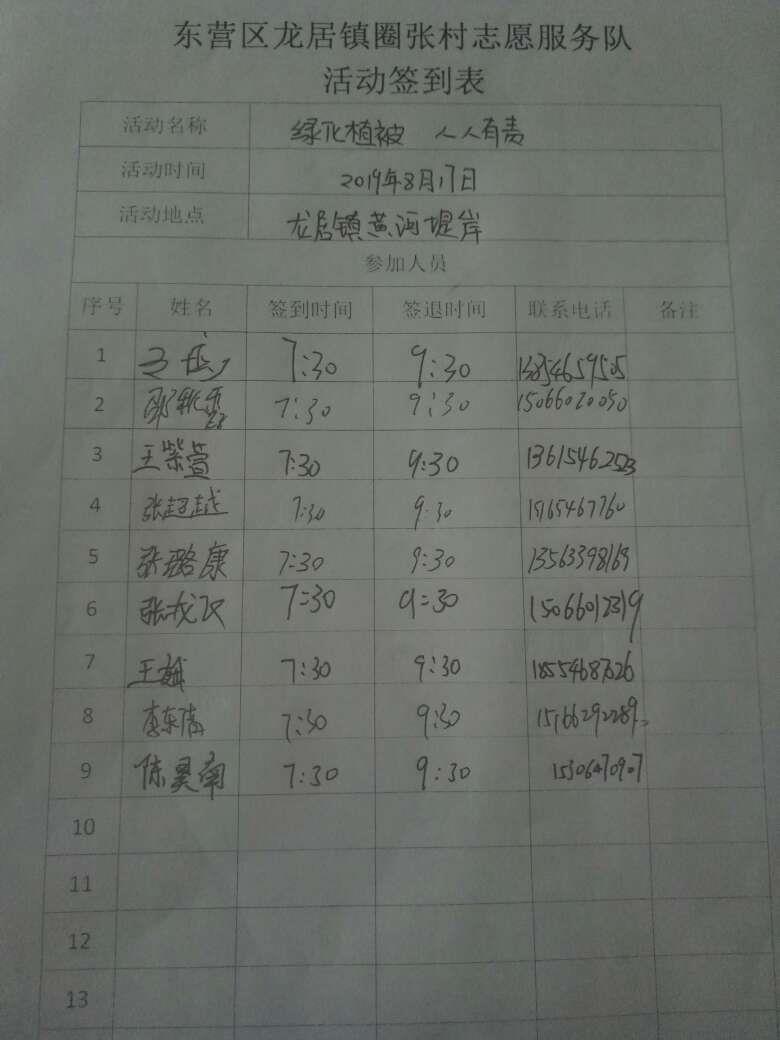 东营区龙居镇圈张村志愿服务队
活动签到表
活动名称 绿化植被 人人有责
活动时间 2019年8月17日
活动地点 龙居镇黄河堤岸
参加人员
序号 姓名 签到时间 签退时间 联系电话 备注
1 7:30 9:30 13854659505
2 7:30 9:30 15066020050
3 王紫萱 7:30 9:30 13615462523
4 张超越 7:30 9:30
5 张璐康 7:30 9:30 13563398169
6 7:30 9:30 15066012319
7 王 7:30 9:30 18554687626
8 李东清 7:30 9:30
9 陈昊南 7:30 9:30 15306470907
10
11
12
13